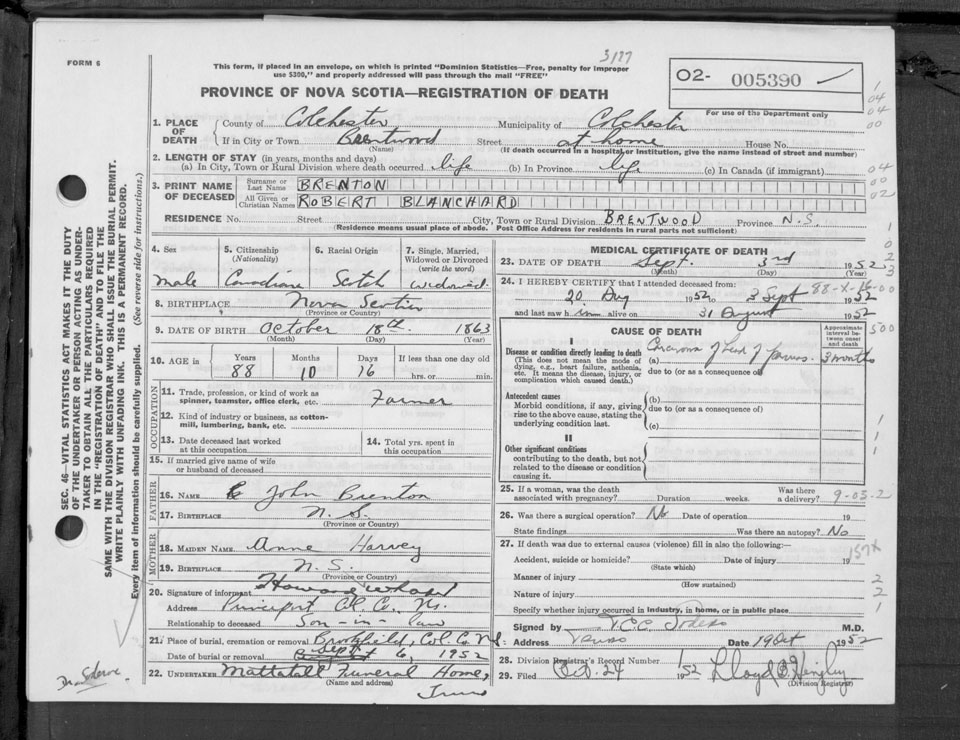 3/77
FORM 6
This form, if placed in an envelope, on which is printed "Dominion Statistics—Free, penalty for improper
use $300," and properly addressed will pass through the mail "FREE"
O2- 005390
PROVINCE OF NOVA SCOTIA—REGISTRATION OF DEATH
For use of the Department only
1. PLACE OF DEATH
County of Colchester Municipality of Colchester
If in City or Town Brentwood Street at home House No.
(Name) (If death occurred in a hospital or institution, give the name instead of street and number)
2. LENGTH OF STAY (in years, months and days)
(a) In City, Town or Rural Division where death occurred life (b) In Province life (c) In Canada (if immigrant)
3. PRINT NAME OF DECEASED
Surname or Last Name BRENTON
All Given or Christian Names ROBERT BLANCHARD
RESIDENCE No. Street City, Town or Rural Division BRENTWOOD Province N.S.
(Residence means usual place of abode. Post Office Address for residents in rural parts not sufficient)
4. Sex 5. Citizenship (Nationality) 6. Racial Origin 7. Single, Married, Widowed or Divorced (write the word)
Male Canadian Scotch widowed
8. BIRTHPLACE Nova Scotia
(Province or Country)
9. DATE OF BIRTH October 18th 1863
(Month) (Day) (Year)
10. AGE in Years Months Days If less than one day old
88 10 16 hrs. or min.
OCCUPATION
11. Trade, profession, or kind of work as spinner, teamster, office clerk, etc. Farmer
12. Kind of industry or business, as cotton-mill, lumbering, bank, etc.
13. Date deceased last worked at this occupation
14. Total yrs. spent in this occupation
15. If married give name of wife or husband of deceased
FATHER
16. NAME John Brenton
17. BIRTHPLACE N.S.
(Province or Country)
MOTHER
18. MAIDEN NAME Anne Harvey
19. BIRTHPLACE N.S.
(Province or Country)
20. Signature of informant Howard
Address Princeport Col. Co. N.S.
Relationship to deceased Son-in-law
21. Place of burial, cremation or removal Brookfield, Col. Co. N.S.
Date of burial or removal Sept 6 1952
22. UNDERTAKER Mattatall Funeral Home, Truro
(Name and address)
MEDICAL CERTIFICATE OF DEATH
23. DATE OF DEATH Sept. 3rd 1952
(Month) (Day) (Year)
24. I HEREBY CERTIFY that I attended deceased from:
20 Aug 1952 to 3 Sept 1952
88-X-16-00
and last saw him alive on 31 August 1952
CAUSE OF DEATH
Approximate interval between onset and death
I
Disease or condition directly leading to death
(This does not mean the mode of dying, e.g., heart failure, asthenia, etc. It means the disease, injury, or complication which caused death.)
(a) Carcinoma of head of Pancreas 3 months
due to (or as a consequence of)
Antecedent causes
Morbid conditions, if any, giving rise to the above cause, stating the underlying condition last.
(b)
due to (or as a consequence of)
(c)
II
Other significant conditions
contributing to the death, but not related to the disease or condition causing it.
25. If a woman, was the death associated with pregnancy? Duration weeks. Was there a delivery?
9-03-2
26. Was there a surgical operation? No Date of operation 19
State findings Was there an autopsy? No
27. If death was due to external causes (violence) fill in also the following:—
157X
Accident, suicide or homicide? Date of injury 19
(State which)
Manner of injury
(How sustained)
Nature of injury
Specify whether injury occurred in industry, in home, or in public place
Signed by M.D.
Address Truro Date 19 Oct 1952
28. Division Registrar's Record Number
29. Filed Oct. 24 1952 Lloyd
(Division Registrar)
SEC. 46—VITAL STATISTICS ACT MAKES IT THE DUTY
OF THE UNDERTAKER OR PERSON ACTING AS UNDER-
TAKER TO OBTAIN ALL THE PARTICULARS REQUIRED
IN THE "REGISTRATION OF DEATH" AND TO FILE THE
SAME WITH THE DIVISION REGISTRAR WHO SHALL ISSUE THE BURIAL PERMIT.
WRITE PLAINLY WITH UNFADING INK. THIS IS A PERMANENT RECORD.
Every item of information should be carefully supplied. (See reverse side for instructions.)